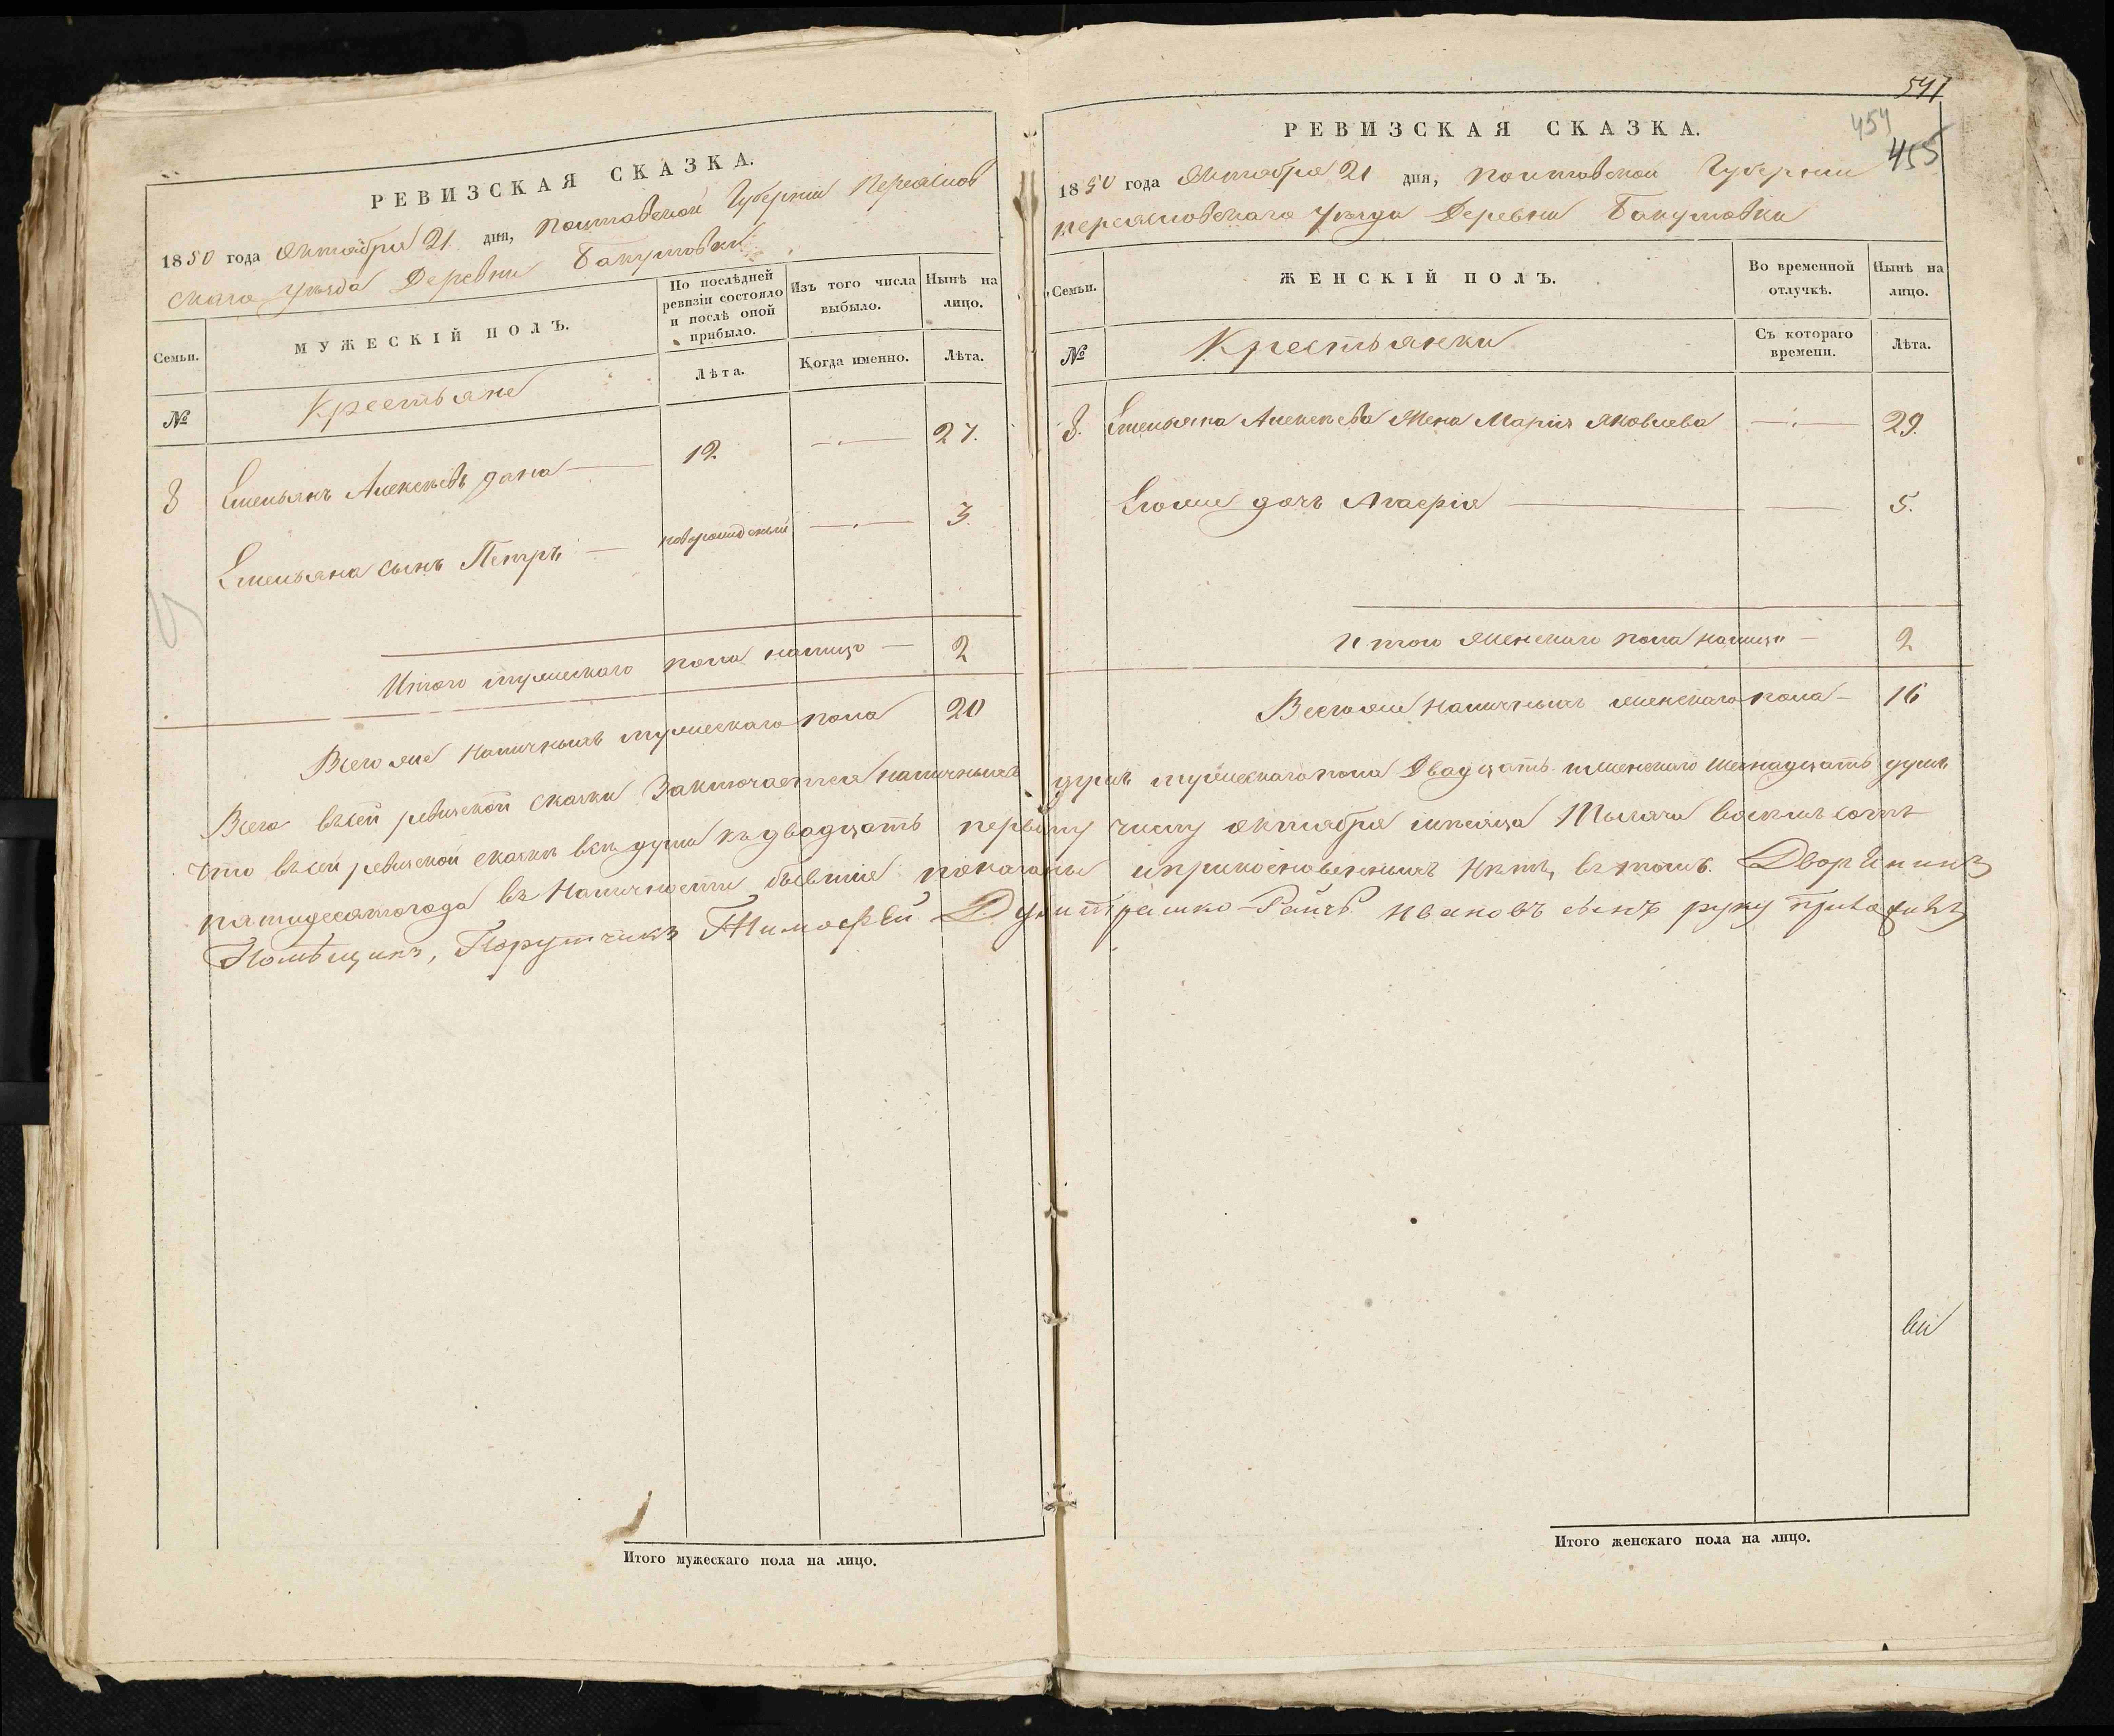 РЕВИЗСКАЯ СКАЗКА.
1850 года Октября 21 дня, Полтавской Губерніи Переяслов
скаго Уѣзда Деревни Бакумовки
Семьи.
МУЖЕСКІЙ ПОЛЪ.
По послѣдней ревизіи состояло и послѣ оной прибыло.
Изъ того числа выбыло.
Нынѣ на лицо.
№
Крестьяне
Лѣта.
Когда именно.
Лѣта.
8 Емельянъ Алексѣевъ 12 — 27.
Емельяна сынъ Петръ — новорожденный — 3.
Итого мужескаго пола налицо — 2
Всего же наличныхъ мужескаго пола 20
Итого мужескаго пола на лицо.
541
454
455
РЕВИЗСКАЯ СКАЗКА.
1850 года Октября 21 дня, Полтавской Губерніи
Переясловскаго Уѣзда Деревни Бакумовки
Семьи.
ЖЕНСКІЙ ПОЛЪ.
Во временной отлучкѣ.
Нынѣ на лицо.
№
Крестьянки
Съ котораго времени.
Лѣта.
8. Емельяна Алексѣева Жена Марія Яковлева — 29.
Егоже дочь Агафія — — 5.
Итого женскаго пола налицо — 2
Всегоже наличныхъ женскаго пола — 16
Всего въсей ревизской сказки Заключается наличныхъ душъ мужескаго пола Двадцать иженскаго шеснадцать душъ
Что въсей ревизской сказкѣ всѣ души къ двадцать первому числу октября мѣсяца Тысяча восемь сотъ
пятидесятогода въ Наличности бывшіе показаны иприкосновенныхъ Нѣтъ, въ томъ. Дворянинъ
Помѣщикъ, Порутчикъ Тимофѣй Думитрашко-Райчъ Ивановъ сынъ руку приложилъ
Итого женскаго пола на лицо.